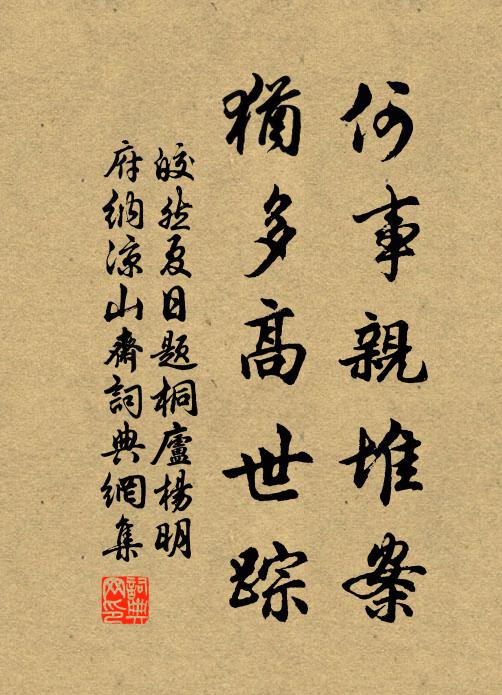 何事親堆案
猶多高世踪
皎然夏日題桐廬楊明
府納涼山齋詞典網集
詞典网印